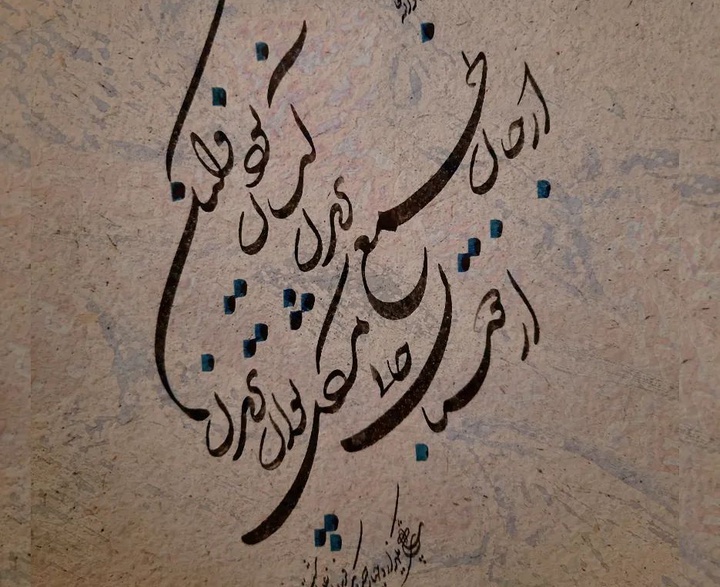 از جان طمع بریدن آسان بود ولیکن
از دوستان جانی مشکل توان بریدن